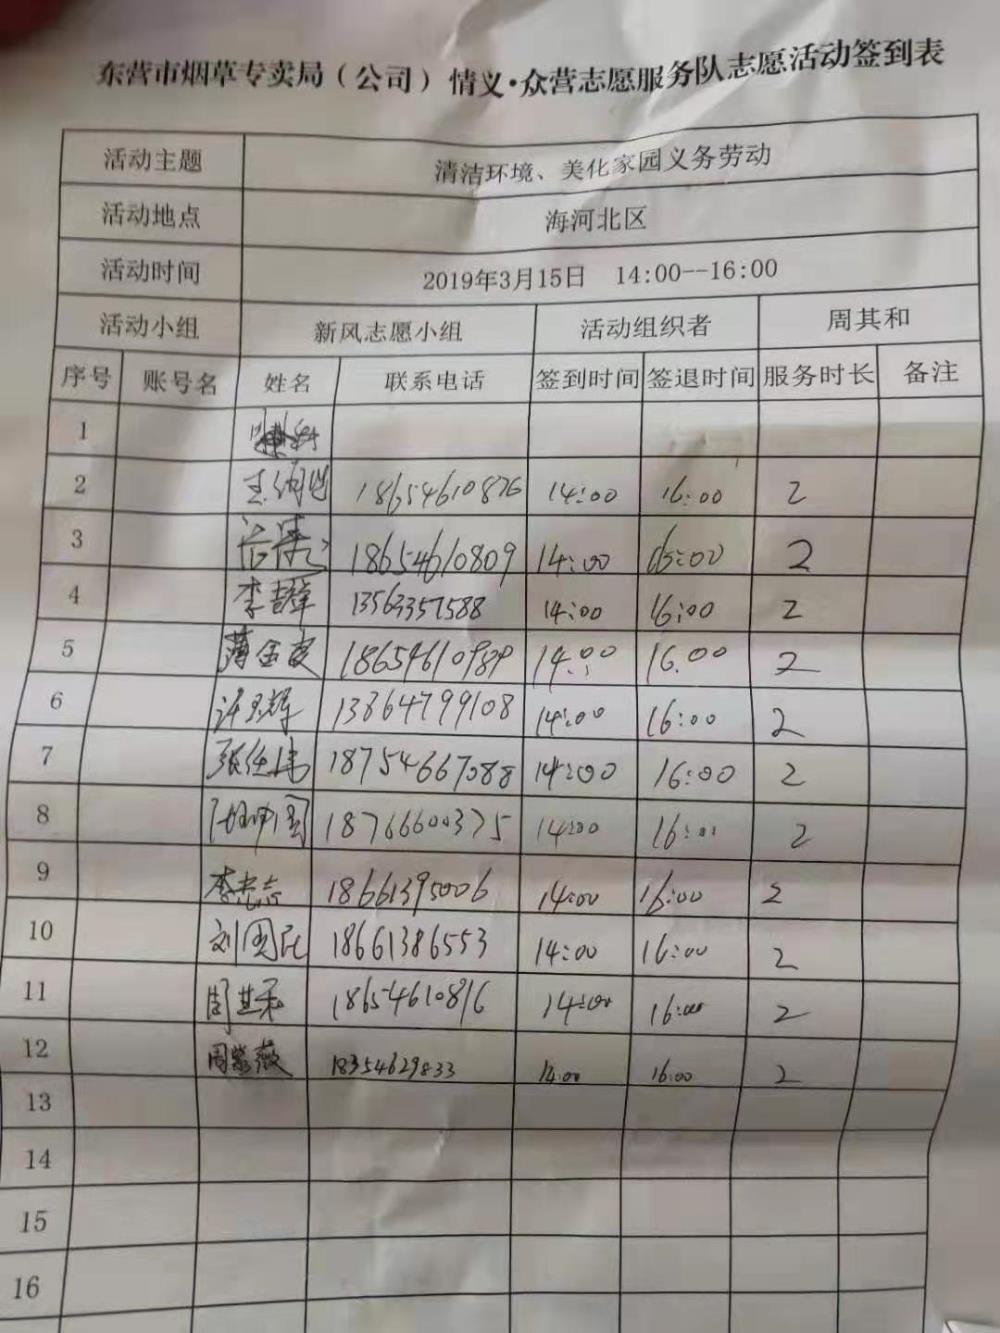 东营市烟草专卖局（公司）情义·众营志愿服务队志愿活动签到表
活动主题 清洁环境、美化家园义务劳动
活动地点 海河北区
活动时间 2019年3月15日 14:00--16:00
活动小组 新风志愿小组 活动组织者 周其和
序号 账号名 姓名 联系电话 签到时间 签退时间 服务时长 备注
1
2 18654610876 14:00 16:00 2
3 18654610809 14:00 16:00 2
4 13563357588 14:00 16:00 2
5 薄金良 18654610989 14:00 16.00 2
6 许玉辉 13864799108 14:00 16:00 2
7 张任伟 18754667088 14:00 16:00 2
8 18766600375 14:00 16:00 2
9 李忠志 18661395006 14:00 16:00 2
10 刘国民 18661386553 14:00 16:00 2
11 周其和 18654610816 14:00 16:00 2
12 周紫薇 18354629833 14:00 16:00 2
13
14
15
16